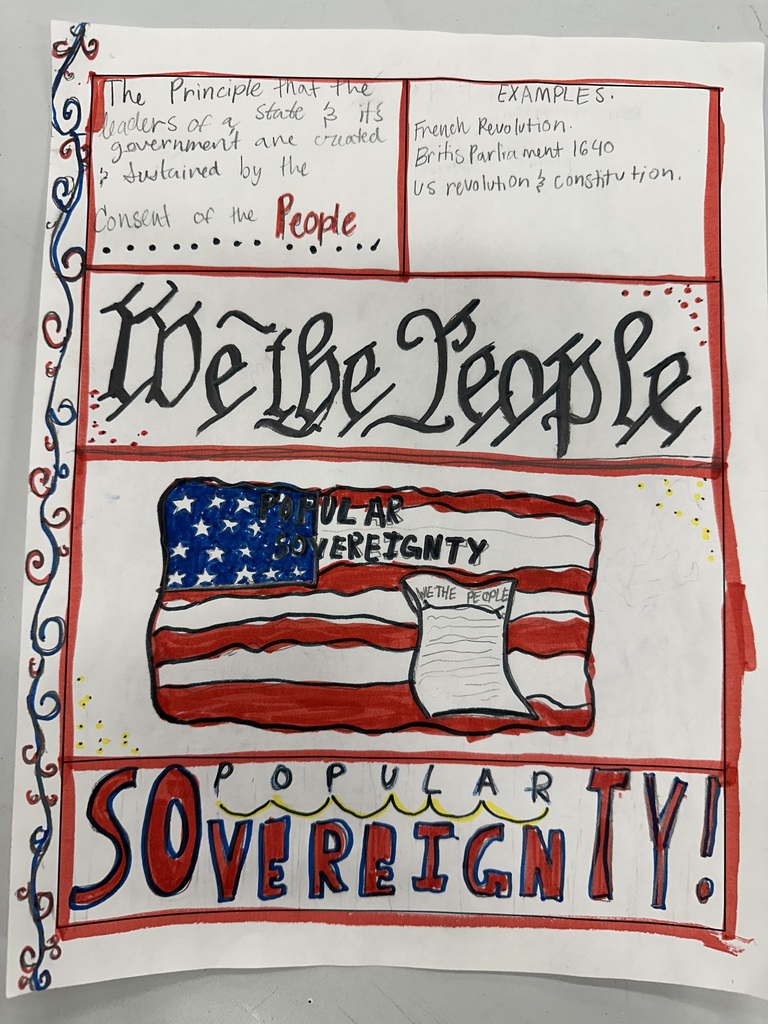 The Principle that the
leaders of a state & its
government are created
& sustained by the
Consent of the People
EXAMPLES.
French Revolution.
Britis Parliament 1640
US revolution & constitution.
We the People
POPULAR
SOVEREIGNTY
WE THE PEOPLE
POPULAR
SOVEREIGNTY!